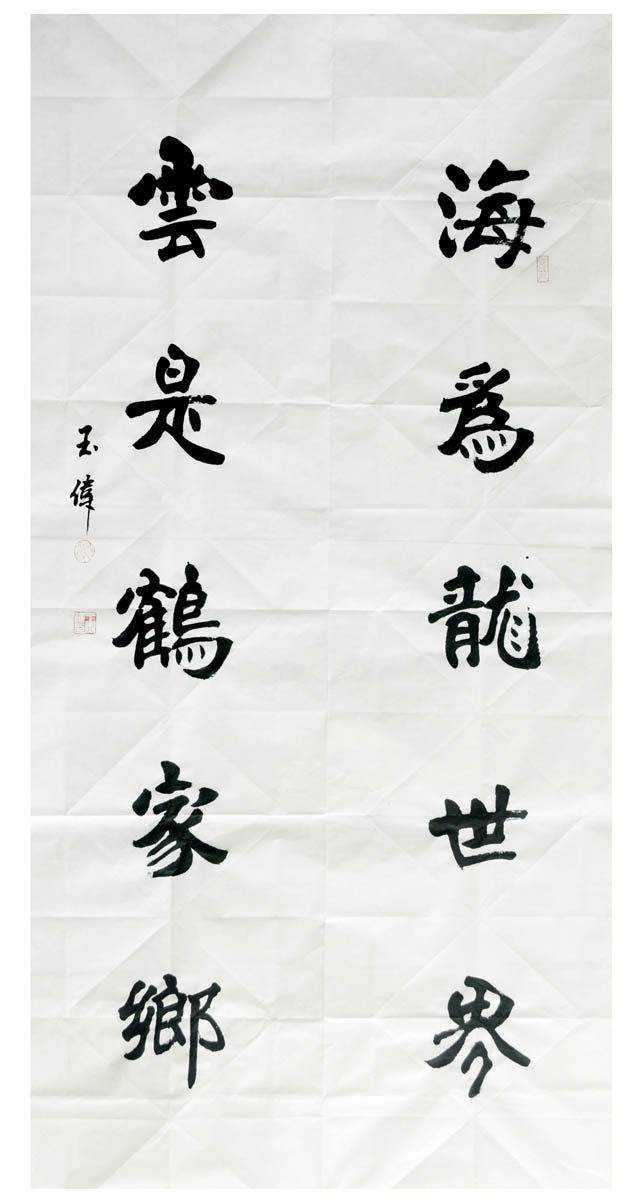 海爲龍世界
雲是鶴家鄉
玉偉